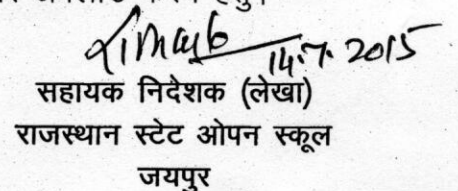 14.7.2015
सहायक निदेशक (लेखा)
राजस्थान स्टेट ओपन स्कूल
जयपुर